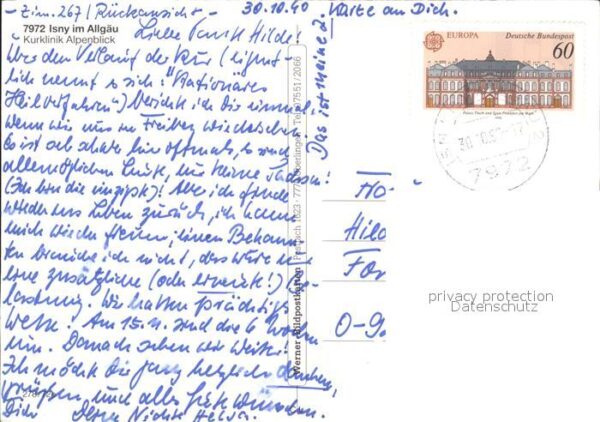 - Zim. 267 / (Rückansicht) - 30.10.90
7972 Isny im Allgäu
Kurklinik Alpenblick
Liebe Tante Hilde!
Über den Verlauf der Kur (eigent-
lich nennt es sich: "Stationäres
Heilverfahren") berichte ich Dir einmal,
wenn wir uns in Freiberg wiedersehen.
Es ist oft schwer hier
allermöglichen Leute, nur keine Sachsen!
(Ich bin die einzige)! Aber ich finde
wieder ins Leben zurück, ich kann
mich wieder freuen, einen Bekann-
ten brauche ich nicht, das wäre nur
eine zusätzliche (oder erneute!) Be-
lastung. Wir hatten prächtiges
Wetter. Am 15.11. sind die 6 Wochen
um. Danach sehen wir weiter!
Ich möchte Dir ganz herzlich danken,
grüßen, und alles Gute wünschen.
Dir Deine Nichte Helga.
Das ist meine 2. Karte an Dich.
Werner Bildpostkarten Postfach 1023 · 7770 Überlingen · Tel. 07551/2066
EUROPA Deutsche Bundespost
60
30.10.90
7972
Hild
O-9
privacy protection
Datenschutz